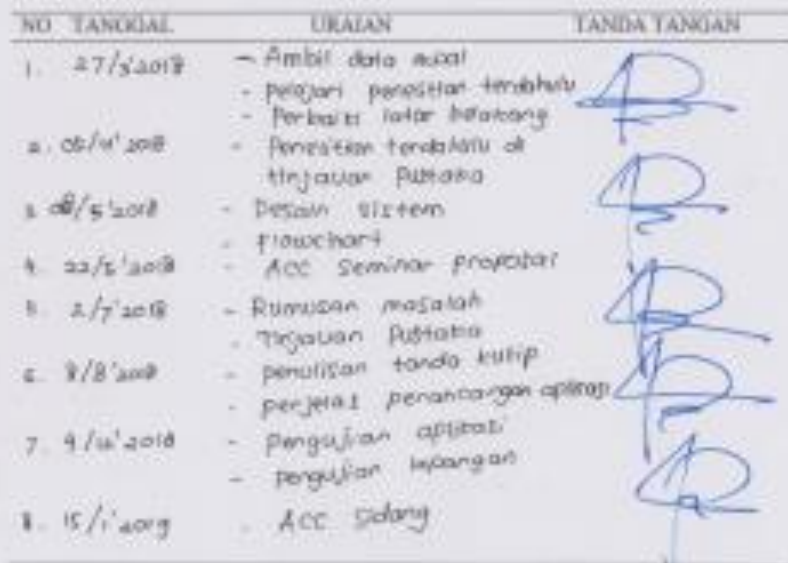 NO TANGGAL URAIAN TANDA TANGAN
1. 27/3'2018 - Ambil data awal
- pelajari penelitian terdahulu
- Perbaiki latar belakang
2. 05/4'2018 - Penelitian terdahulu di
tinjauan Pustaka
3. /5'2018 - Desain sistem
- Flowchart
4. 22/5'2018 - ACC Seminar proposal
5. 2/7'2018 - Rumusan masalah
- Tinjauan Pustaka
6. 8/8'2018 - penulisan tanda kutip
- perjelas perancangan aplikasi
7. 9/ '2018 - pengujian aplikasi
- pengujian lapangan
8. 15/1'2019 - ACC Sidang